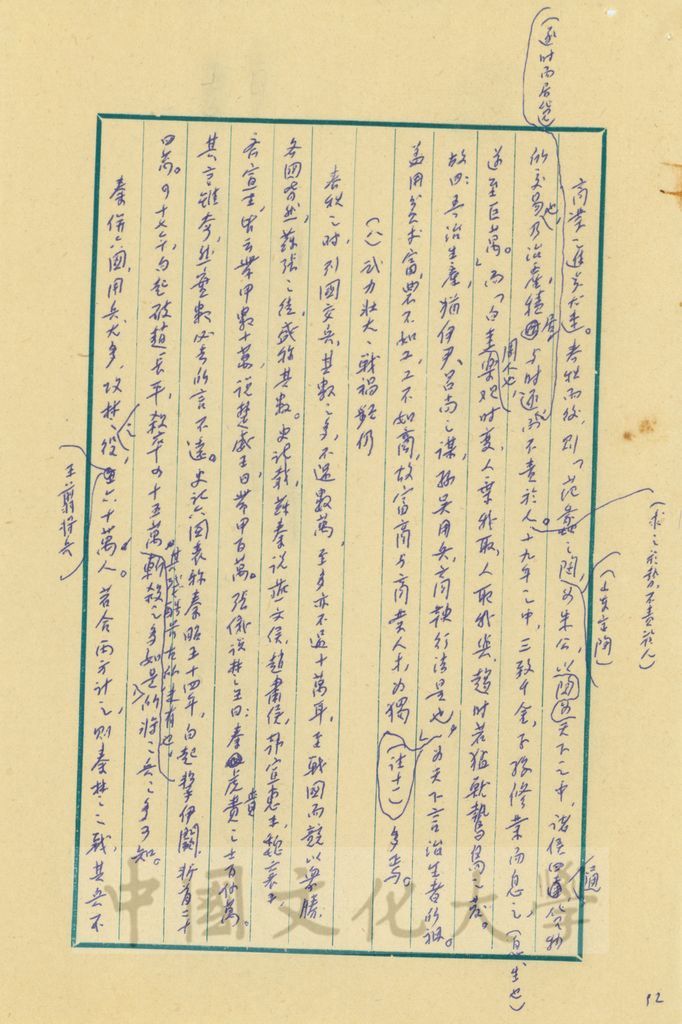 商業進步尤速。春秋而後，則「范蠡之陶，為朱公，以陶為天下之中，諸侯四通，貨物
所交易也，乃治產積居，與時逐，而不責於人。十九年之中，三致千金，子孫修業而息之（息，生也）
遂至巨萬。」而「白圭，周人也，樂觀時變，人棄我取，人取我與，趨時若猛獸鷙鳥之發。
故曰：吾治生產，猶伊尹、呂尚之謀，孫吳用兵，商鞅行法是也。」為天下言治生者的祖。
蓋用貧求富，農不如工，工不如商，故富商與商業人才，為獨多焉。（註十一）
（八）武力壯大、戰禍頻仍
春秋之時，列國交兵，其數之多，不過數萬，至多亦不過十萬耳，至戰國而競以眾勝
各國皆然，蘇張之徒，盛稱其數。史記載，蘇秦說燕文侯，趙肅侯，韓宣惠王，魏襄王，
齊宣王，皆云帶甲數十萬，說楚威王曰，帶甲百萬。張儀說楚王曰：秦虎賁之士百餘萬。
其言雖夸，然其數必去所言不遠。史記六國表稱秦昭王十四年，白起擊伊闕，斬首二十
四萬。四十七年，白起破趙長平，殺卒四十五萬，斬殺之多如是，其殘酷為古所未有也，所將之兵之多可知。
秦併六國，用兵尤多，攻楚之役，至六十萬人。若合兩方計之，則秦楚之戰，其兵不
（逐時而居貨）
（求之於勢，不責於人）
（山東定陶）
王翦將兵
12
中國文化大學